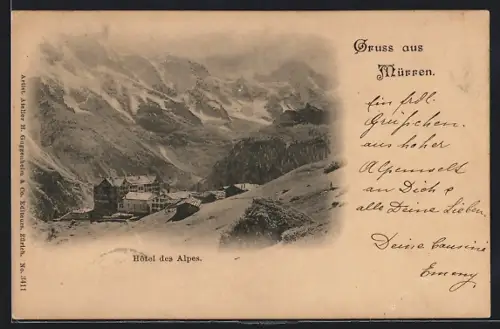 Gruss aus
Mürren.
Ein frdl.
Grüßchen
aus hoher
Alpenwelt
an Dich &
alle Deine Lieben.
Deine Cousine
Emmy
Hôtel des Alpes.
Artist. Atelier H. Guggenheim & Co. Editeurs, Zürich. No. 3411